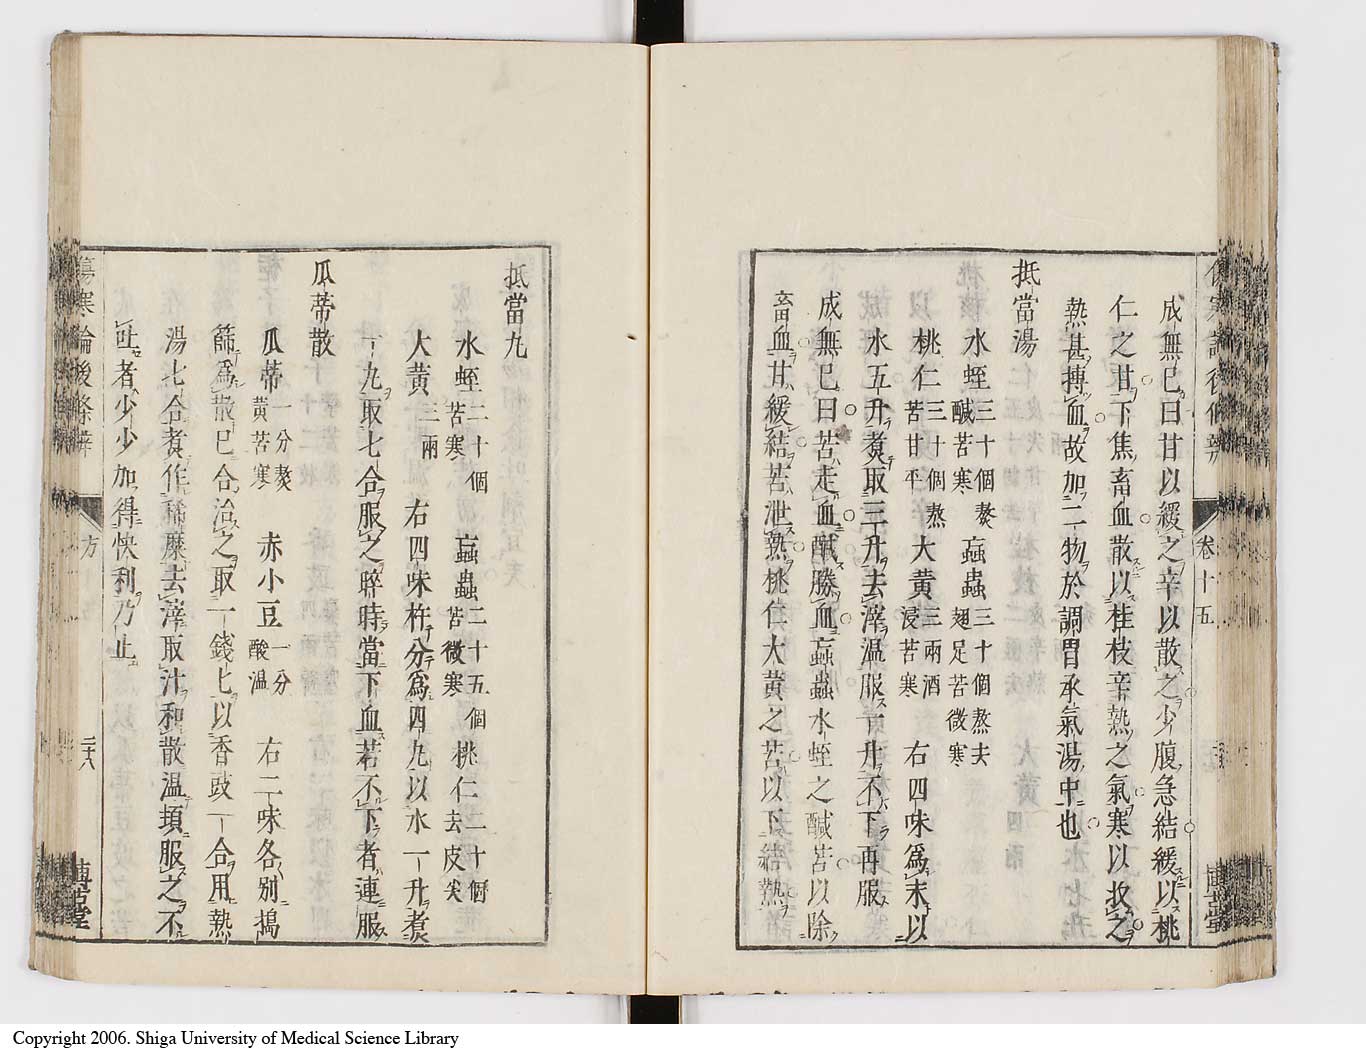 成無巳曰甘以緩之辛以散之少腹急結緩以桃
仁之甘下焦畜血散以桂枝辛熱之氣寒以攻之
熱甚搏血故加二物於調胃承氣湯中也
抵當湯
水蛭三十個熬鹹苦寒 蝱蟲三十個熬去翅足苦微寒
桃仁三十個熬苦甘平 大黃三兩酒浸苦寒 右四味為末以
水五升煮取三升去滓温服一升不下再服
成無巳曰苦走血鹹勝血蝱蟲水蛭之鹹苦以除
畜血甘緩結苦泄熱桃仁大黃之苦以下結熱
卷十五
抵當九
水蛭二十個苦寒 蝱蟲二十五個苦微寒 桃仁二十個去皮尖
大黃三兩 右四味杵分為四九以水一升煮
一九取七合服之晬時當下血若不下者連服
瓜蒂散
瓜蒂一分熬黃苦寒 赤小豆一分酸温 右二味各別搗
篩為散巳合治之取一錢匕以香豉一合用熱
湯七合煮作稀糜去滓取汁和散温頓服之不
吐者少少加得快利乃止
傷寒論後條辨
方
二十八
博古堂
Copyright 2006. Shiga University of Medical Science Library